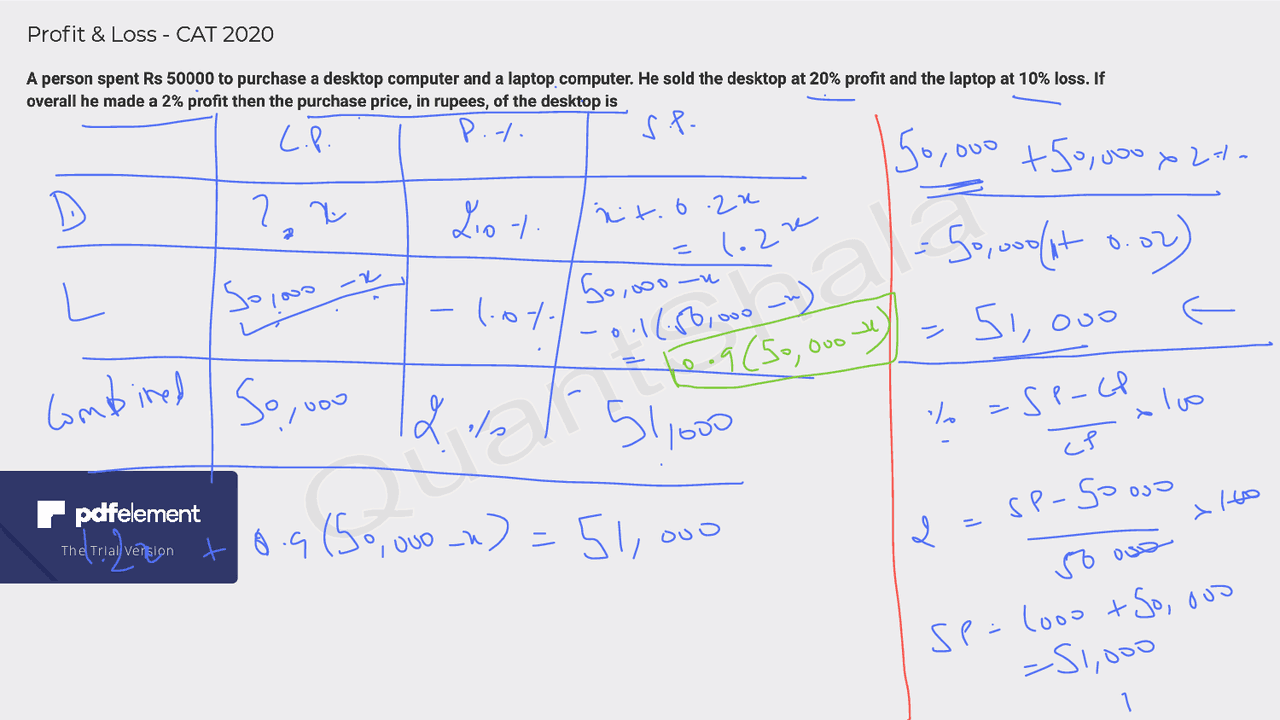 Profit & Loss - CAT 2020
A person spent Rs 50000 to purchase a desktop computer and a laptop computer. He sold the desktop at 20% profit and the laptop at 10% loss. If
overall he made a 2% profit then the purchase price, in rupees, of the desktop is
C.P. P.% S.P.
D ?, x 20% x + 0.2x
= 1.2x
L 50,000 - x - 10% 50,000 - x
- 0.1(50,000 - x)
= 0.9(50,000 - x)
Combined 50,000 2% 51,000
1.2x + 0.9(50,000 - x) = 51,000
50,000 + 50,000 × 2%
= 50,000(1 + 0.02)
= 51,000 ←
% = SP - CP / CP × 100
2 = SP - 50000 / 50000 × 100
SP = 1000 + 50,000
= 51,000
QuantShala
pdfelement
The Trial Version